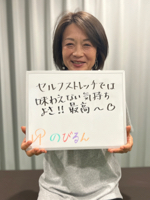 セルフストレッチでは
味わえない気持ち
よさ!! 最高〜
のびるん